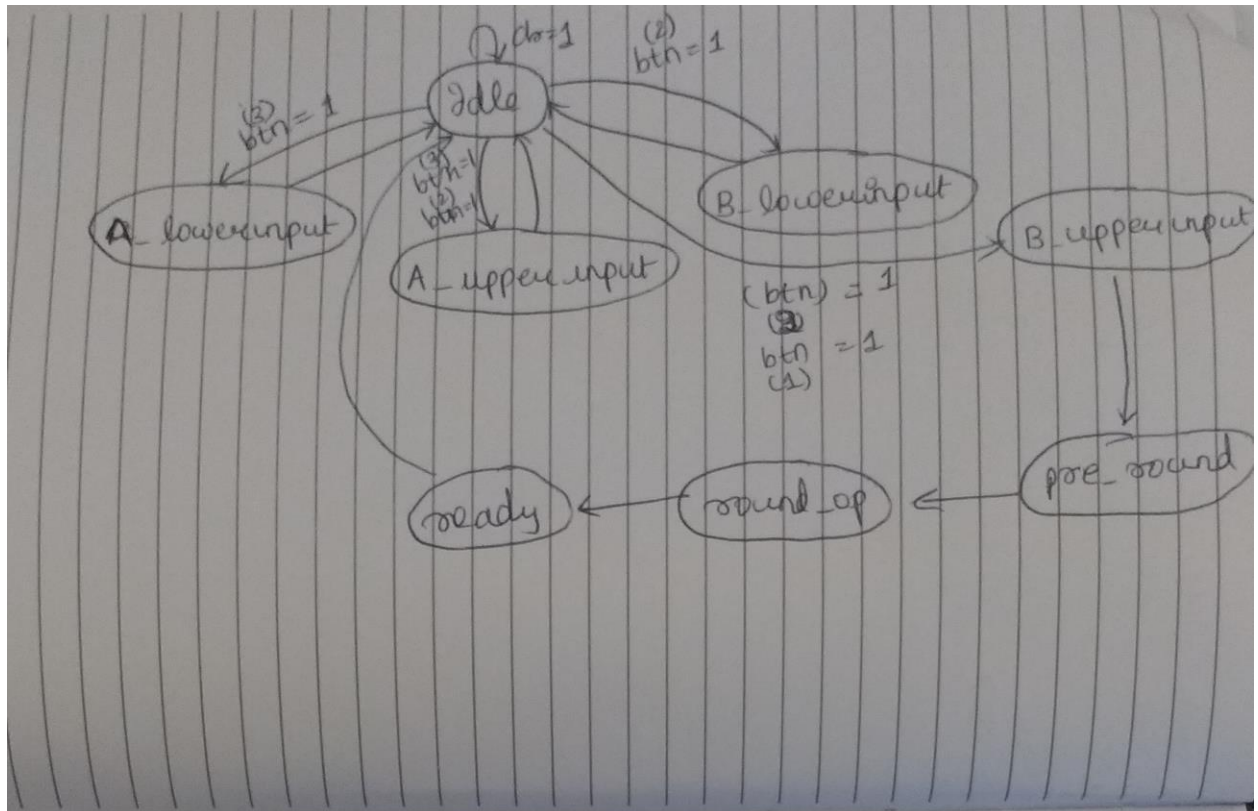 clr=1
(2)
btn = 1
Idle
(3)
btn = 1
(3)
btn=1
(2)
btn=1
B_lowerinput
A_lowerinput
B_upperinput
A_upper_input
(btn) = 1
btn = 1
(1)
pre_round
ready
round_op